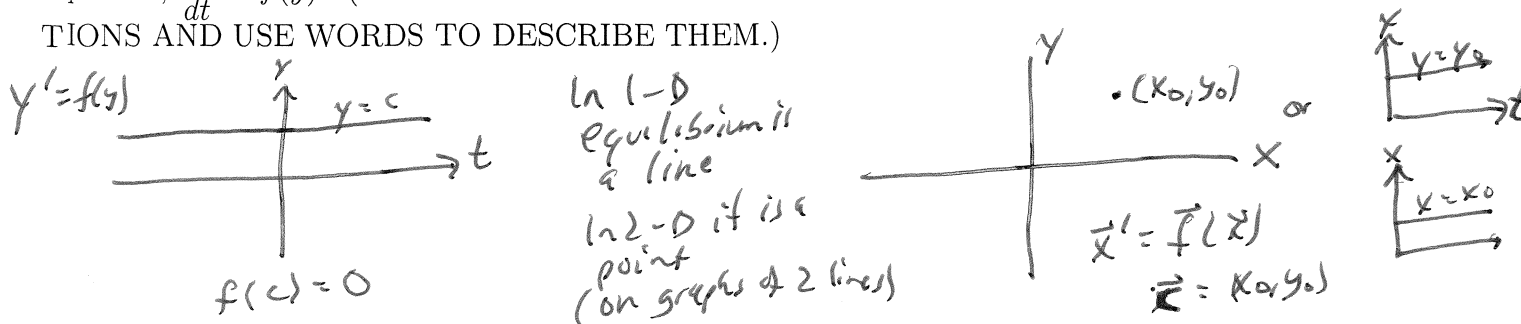 dt
TIONS AND USE WORDS TO DESCRIBE THEM.)
y' = f(y)
Y
y = c
t
f(c) = 0
In 1-D
equilibrium is
a line
In 2-D it is a
point
(on graphs of 2 lines)
Y
.(x0, y0)
X
or
x⃗' = f⃗(x⃗)
x⃗ = (x0, y0)
Y
y = y0
t
X
x = x0